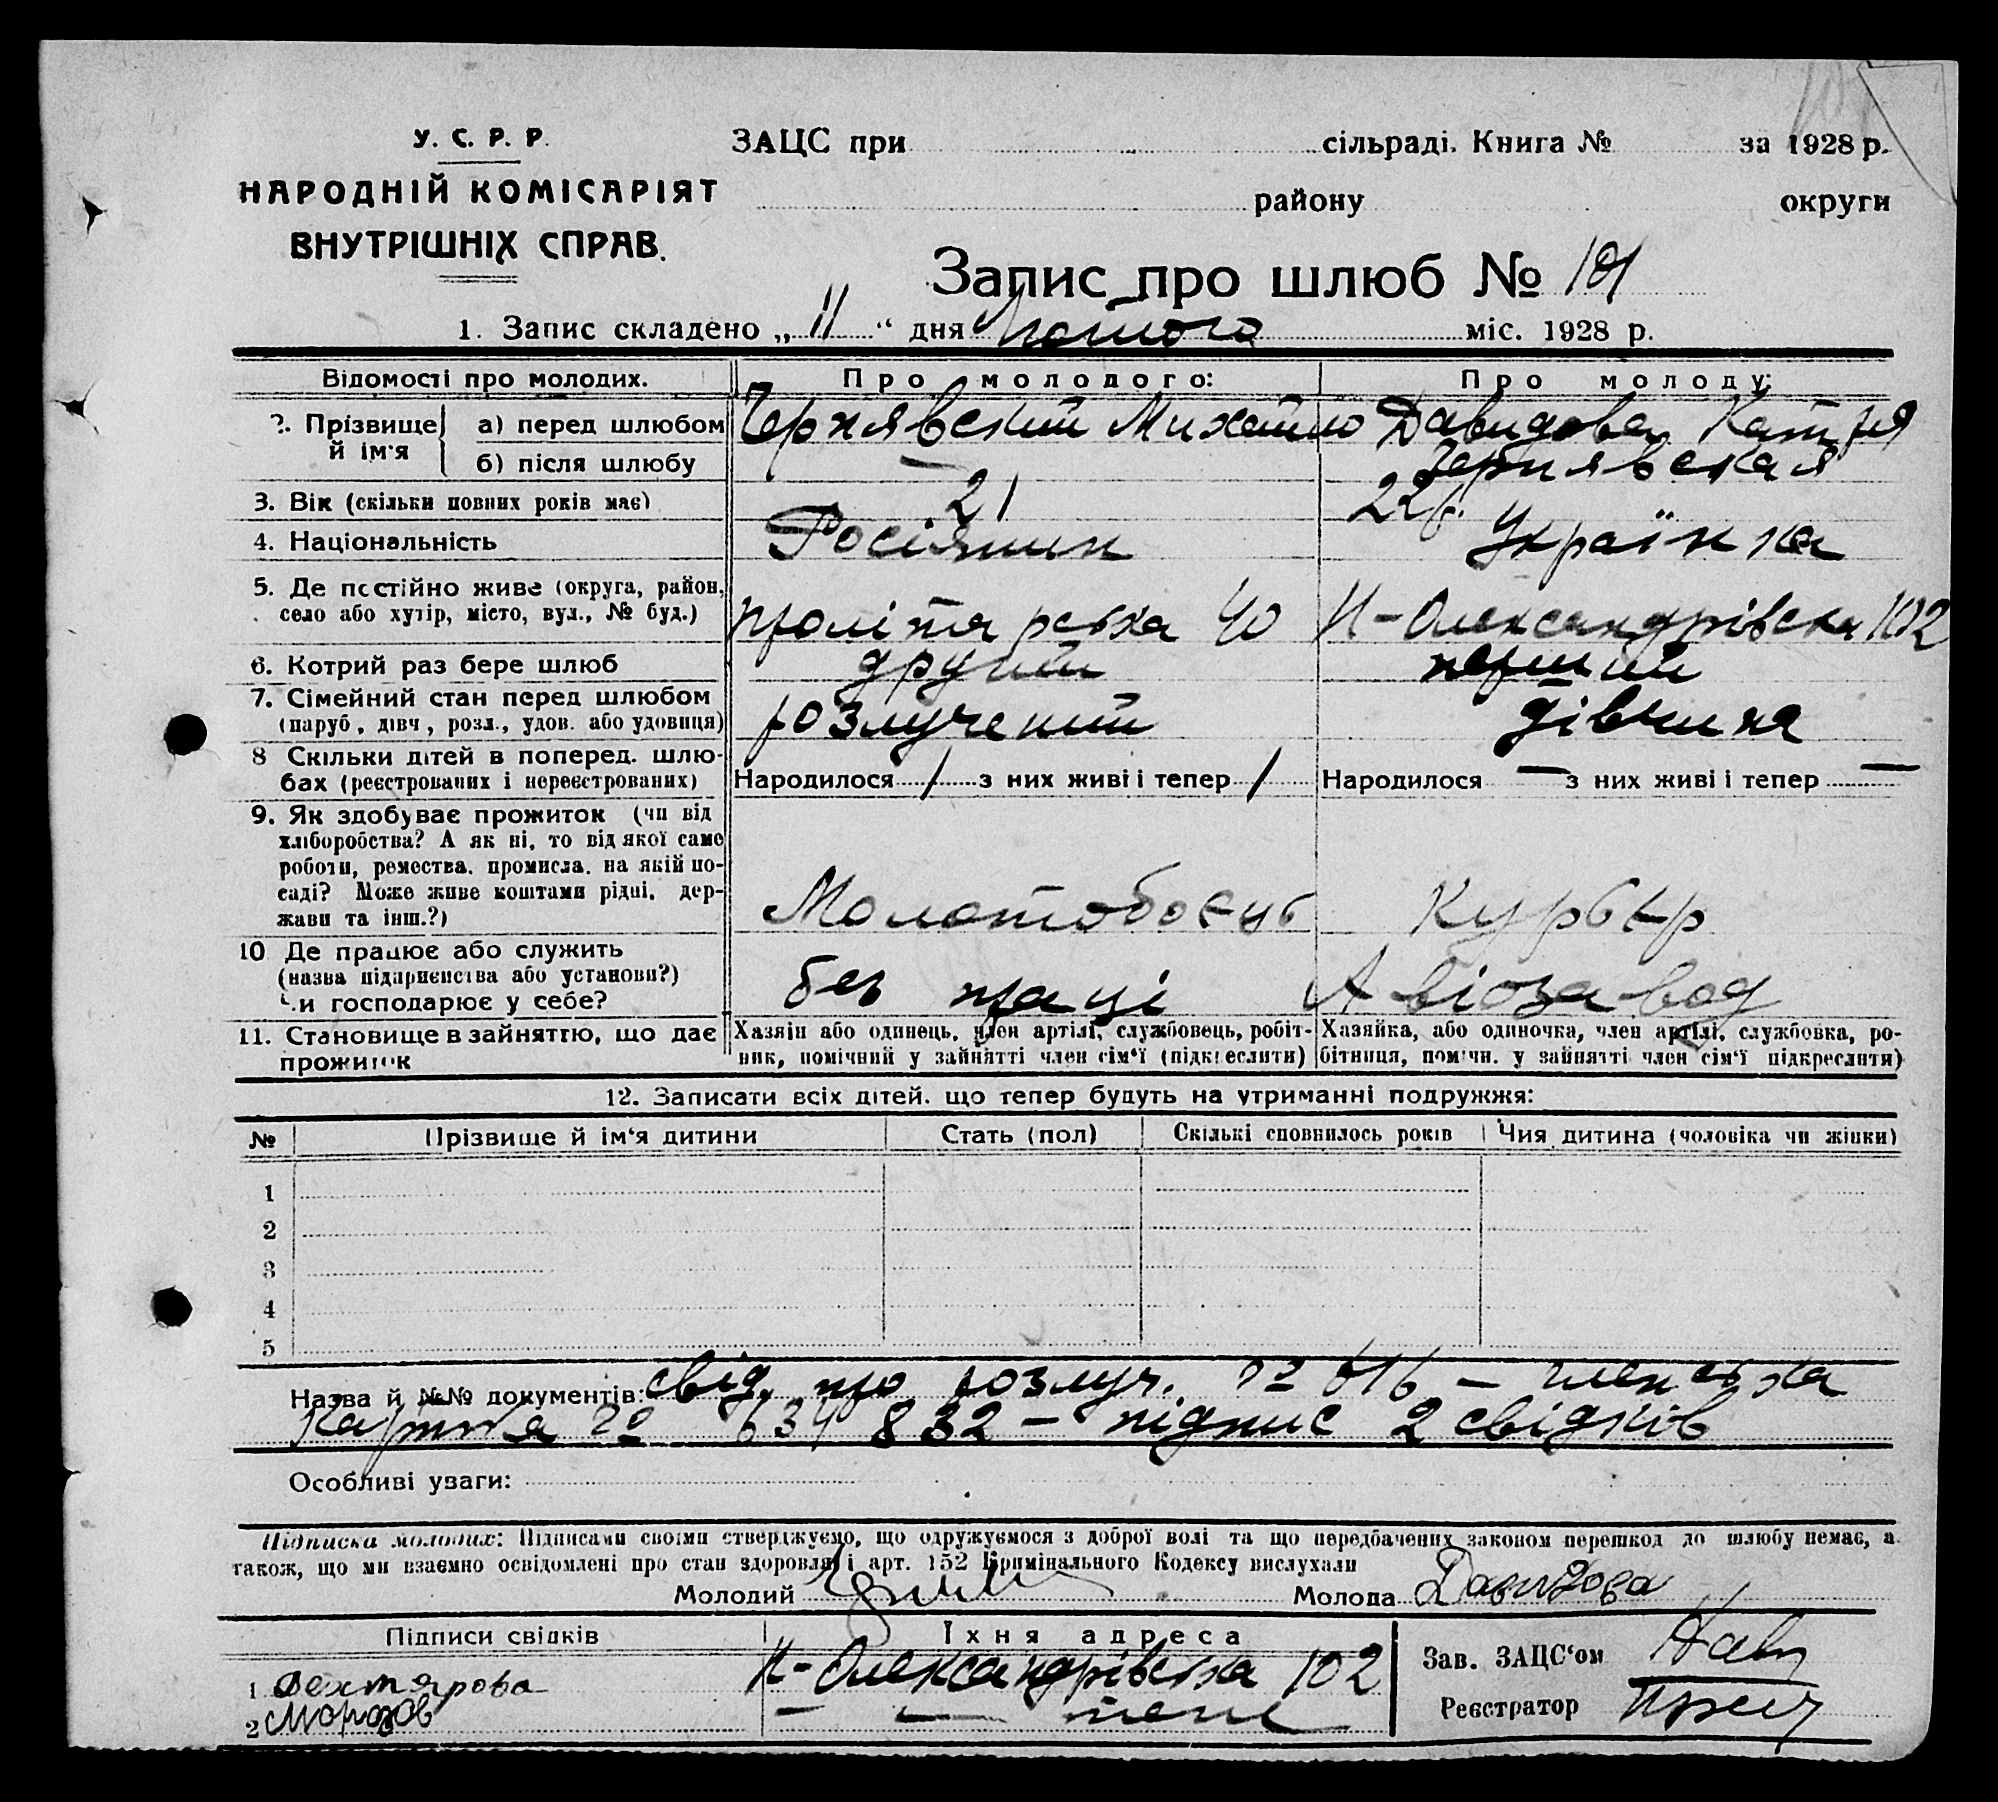 У. С. Р. Р.
НАРОДНІЙ КОМІСАРІЯТ
ВНУТРІШНІХ СПРАВ.
ЗАЦС при сільраді. Книга № за 1928 р.
району округи
Запис про шлюб № 101
1. Запис складено „ 11 “ дня Лютого міс. 1928 р.
Відомості про молодих. Про молодого: Про молоду:
2. Прізвище й ім'я
а) перед шлюбом Чернявский Михайло Давидова Катря
б) після шлюбу — Чернявская
3. Вік (скільки повних років має) 21 22 р.
4. Національність Росіянин Українка
5. Де постійно живе (округа, район, село або хутір, місто, вул., № буд.) Пролітарська 40 Н-Олександрівська 102
6. Котрий раз бере шлюб другий перший
7. Сімейний стан перед шлюбом (паруб., дівч., розл., удов. або удовиця) розлучений дівчина
8 Скільки дітей в поперед. шлюбах (реєстрованих і нереєстрованих) Народилося / з них живі і тепер / Народилося — з них живі і тепер —
9. Як здобуває прожиток (чи від хліборобства? А як ні, то від якої саме роботи, ремества, промисла, на якій посаді? Може живе коштами рідні, держави та інш.?) Молотобоєць Курьєр
10 Де працює або служить (назва підприємства або установи?) Чи господарює у себе? без праці Авіозавод
11. Становище в зайняттю, що дає прожиток
Хазяїн або одинець, член артілі, службовець, робітник, помічний у зайнятті член сім'ї (підкреслити)
Хазяйка, або одиночка, член артілі, службовка, робітниця, помічн. у зайнятті член сім'ї підкреслити)
12. Записати всіх дітей, що тепер будуть на утриманні подружжя:
№ Прізвище й ім'я дитини Стать (пол) Скількі сповнилось років Чия дитина (чоловіка чи жінки)
1
2
3
4
5
Назва й №№ документів: свід. про розлуч. № 616 — членська
картка № 634832 — підпис 2 свідків
Особливі уваги:
Підписка молодих: Підписами своїми стверджуємо, що одружуємося з доброї волі та що передбачених законом перешкод до шлюбу немає, а
також, що ми взаємно освідомлені про стан здоровля і арт. 152 Кримінального Кодексу вислухали
Молодий Молода Давидова
Підписи свідків Їхня адреса
1 Дехтярова Н-Олександрівська 102
2 Морозов — — —
Зав. ЗАЦС'ом
Реєстратор